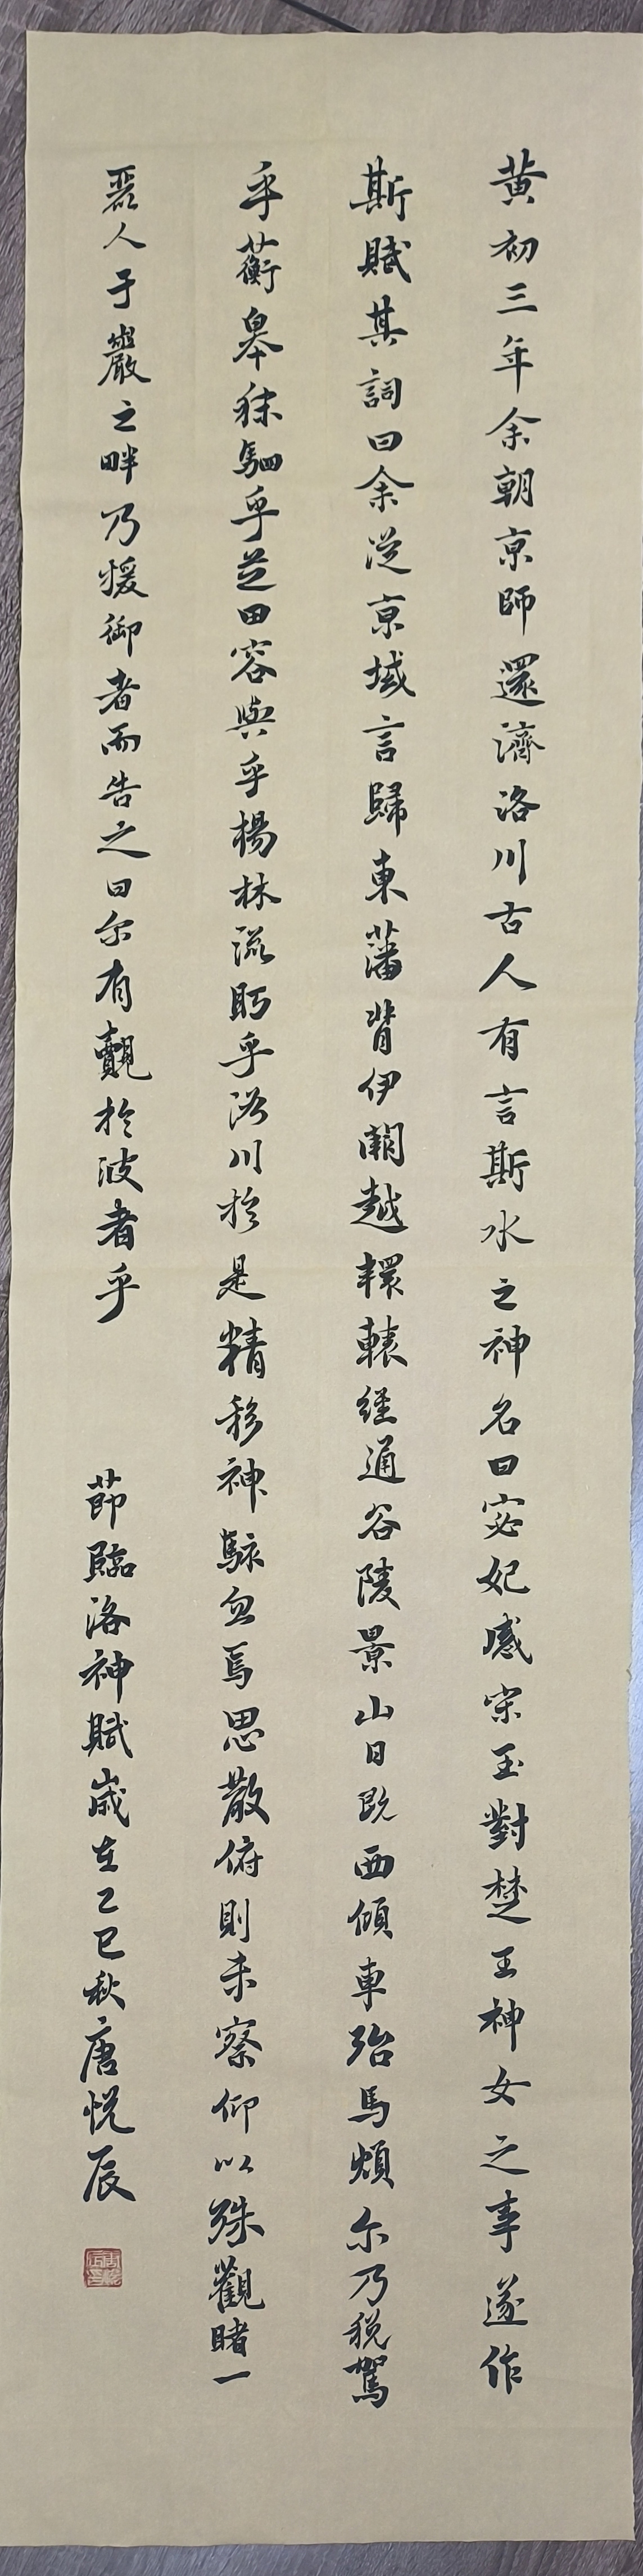 黄初三年余朝京師還濟洛川古人有言斯水之神名曰宓妃感宋玉對楚王神女之事遂作
斯賦其詞曰余從京域言歸東藩背伊闕越轘轅經通谷陵景山日既西傾車殆馬煩尔乃税駕
乎蘅皋秣駟乎芝田容與乎楊林流眄乎洛川於是精移神駭忽焉思散俯則未察仰以殊觀睹一
麗人于巖之畔乃援御者而告之曰尔有覿於彼者乎
節臨洛神賦歲在乙巳秋唐悦辰